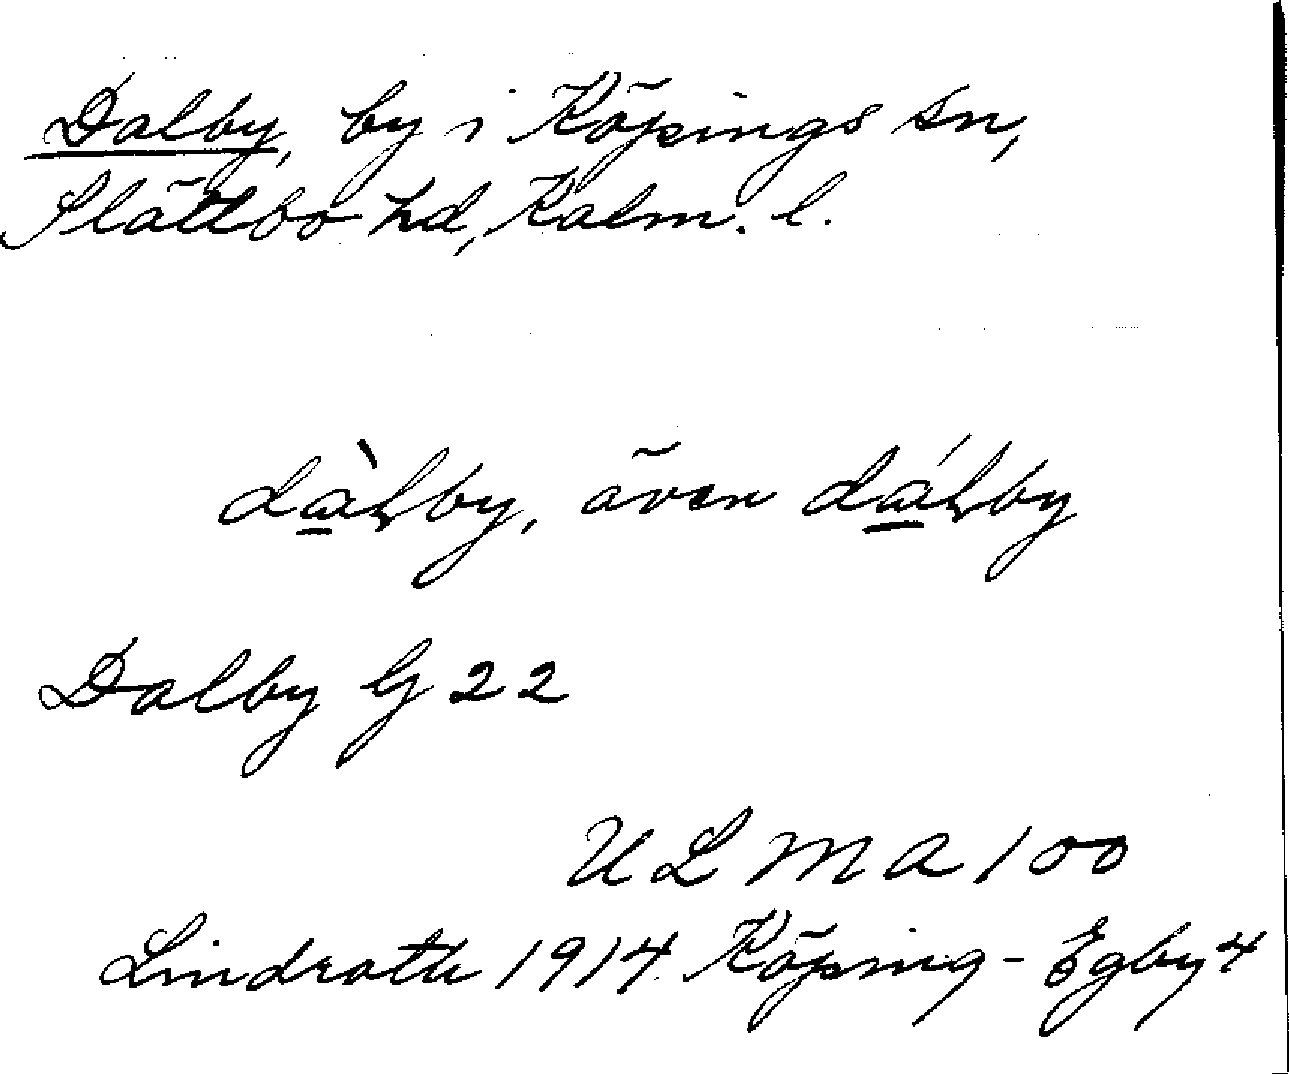 Dalby, by i Köpings sn,
Slättbo hd, Kalm. l.
dà̲lby, även dá̲lby
Dalby G 22
ULMA 100
Lindroth 1914 Köping - Egby 4